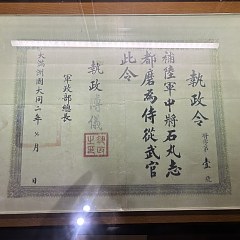 執政令
補陸軍中將石丸志
都磨為侍從武官
此令
執政溥儀
軍政部總長
大滿洲國大同二年 月 日